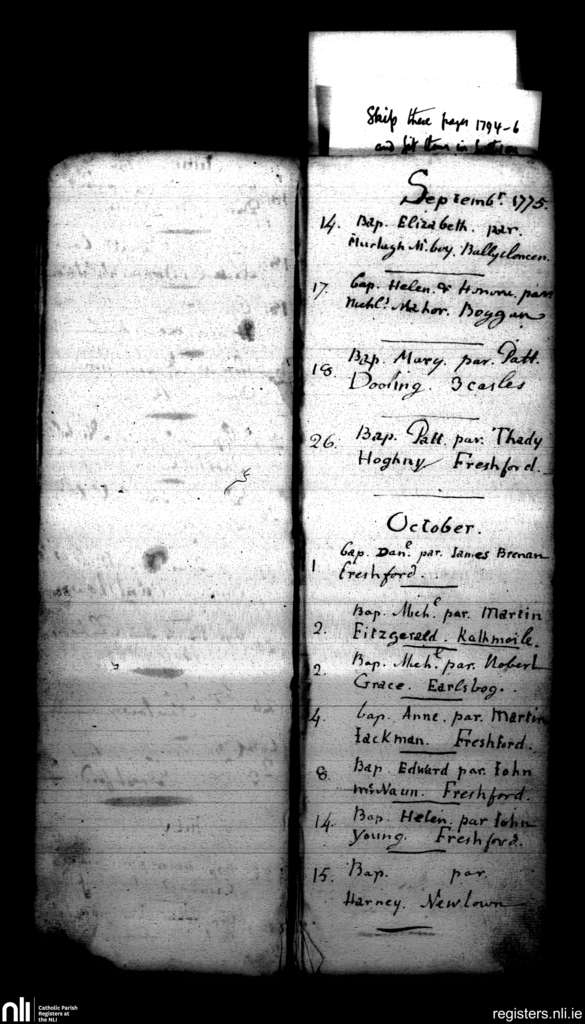 Skip these pages 1794-6
and fit them in
Septembr. 1775.
14. Bap. Elizabeth. par.
Murtagh Mcboy. Ballycloncen.
17. bap. Helen & Honora. par
Michls. Mahor. Boggan
18. Bap. Mary. par. Patt.
Dooling. 3 casles
26. Bap. Patt. par. Thady
Hoghny Freshford.
October.
1 bap. Dane. par. Iames Brenan
Freshford.
2. Bap. Miche. par. Martin
Fitzgerald. Kathmoile.
2. Bap. Miche. par. Robert
Grace. Earlsbog.
4. bap. Anne. par. Martin
Iackman. Freshford.
8. Bap Edward par. Iohn
McNaun. Freshford.
14. Bap. Helen. par Iohn
Young. Freshford.
15. Bap. par.
Harney. Newtown
nli
Catholic Parish
Registers at
the NLI
registers.nli.ie